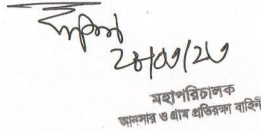 ২৮/০১/২৬
মহাপরিচালক
আনসার ও গ্রাম প্রতিরক্ষা বাহিনী